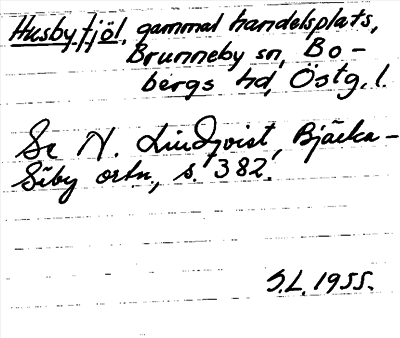 Husby fjöl, gammal handelsplats,
Brunneby sn, Bo-
bergs hd, Östg. l.
Se N. Lindqvist, Bjälka-
Säby ortn., s. 382.
S.L. 1955.